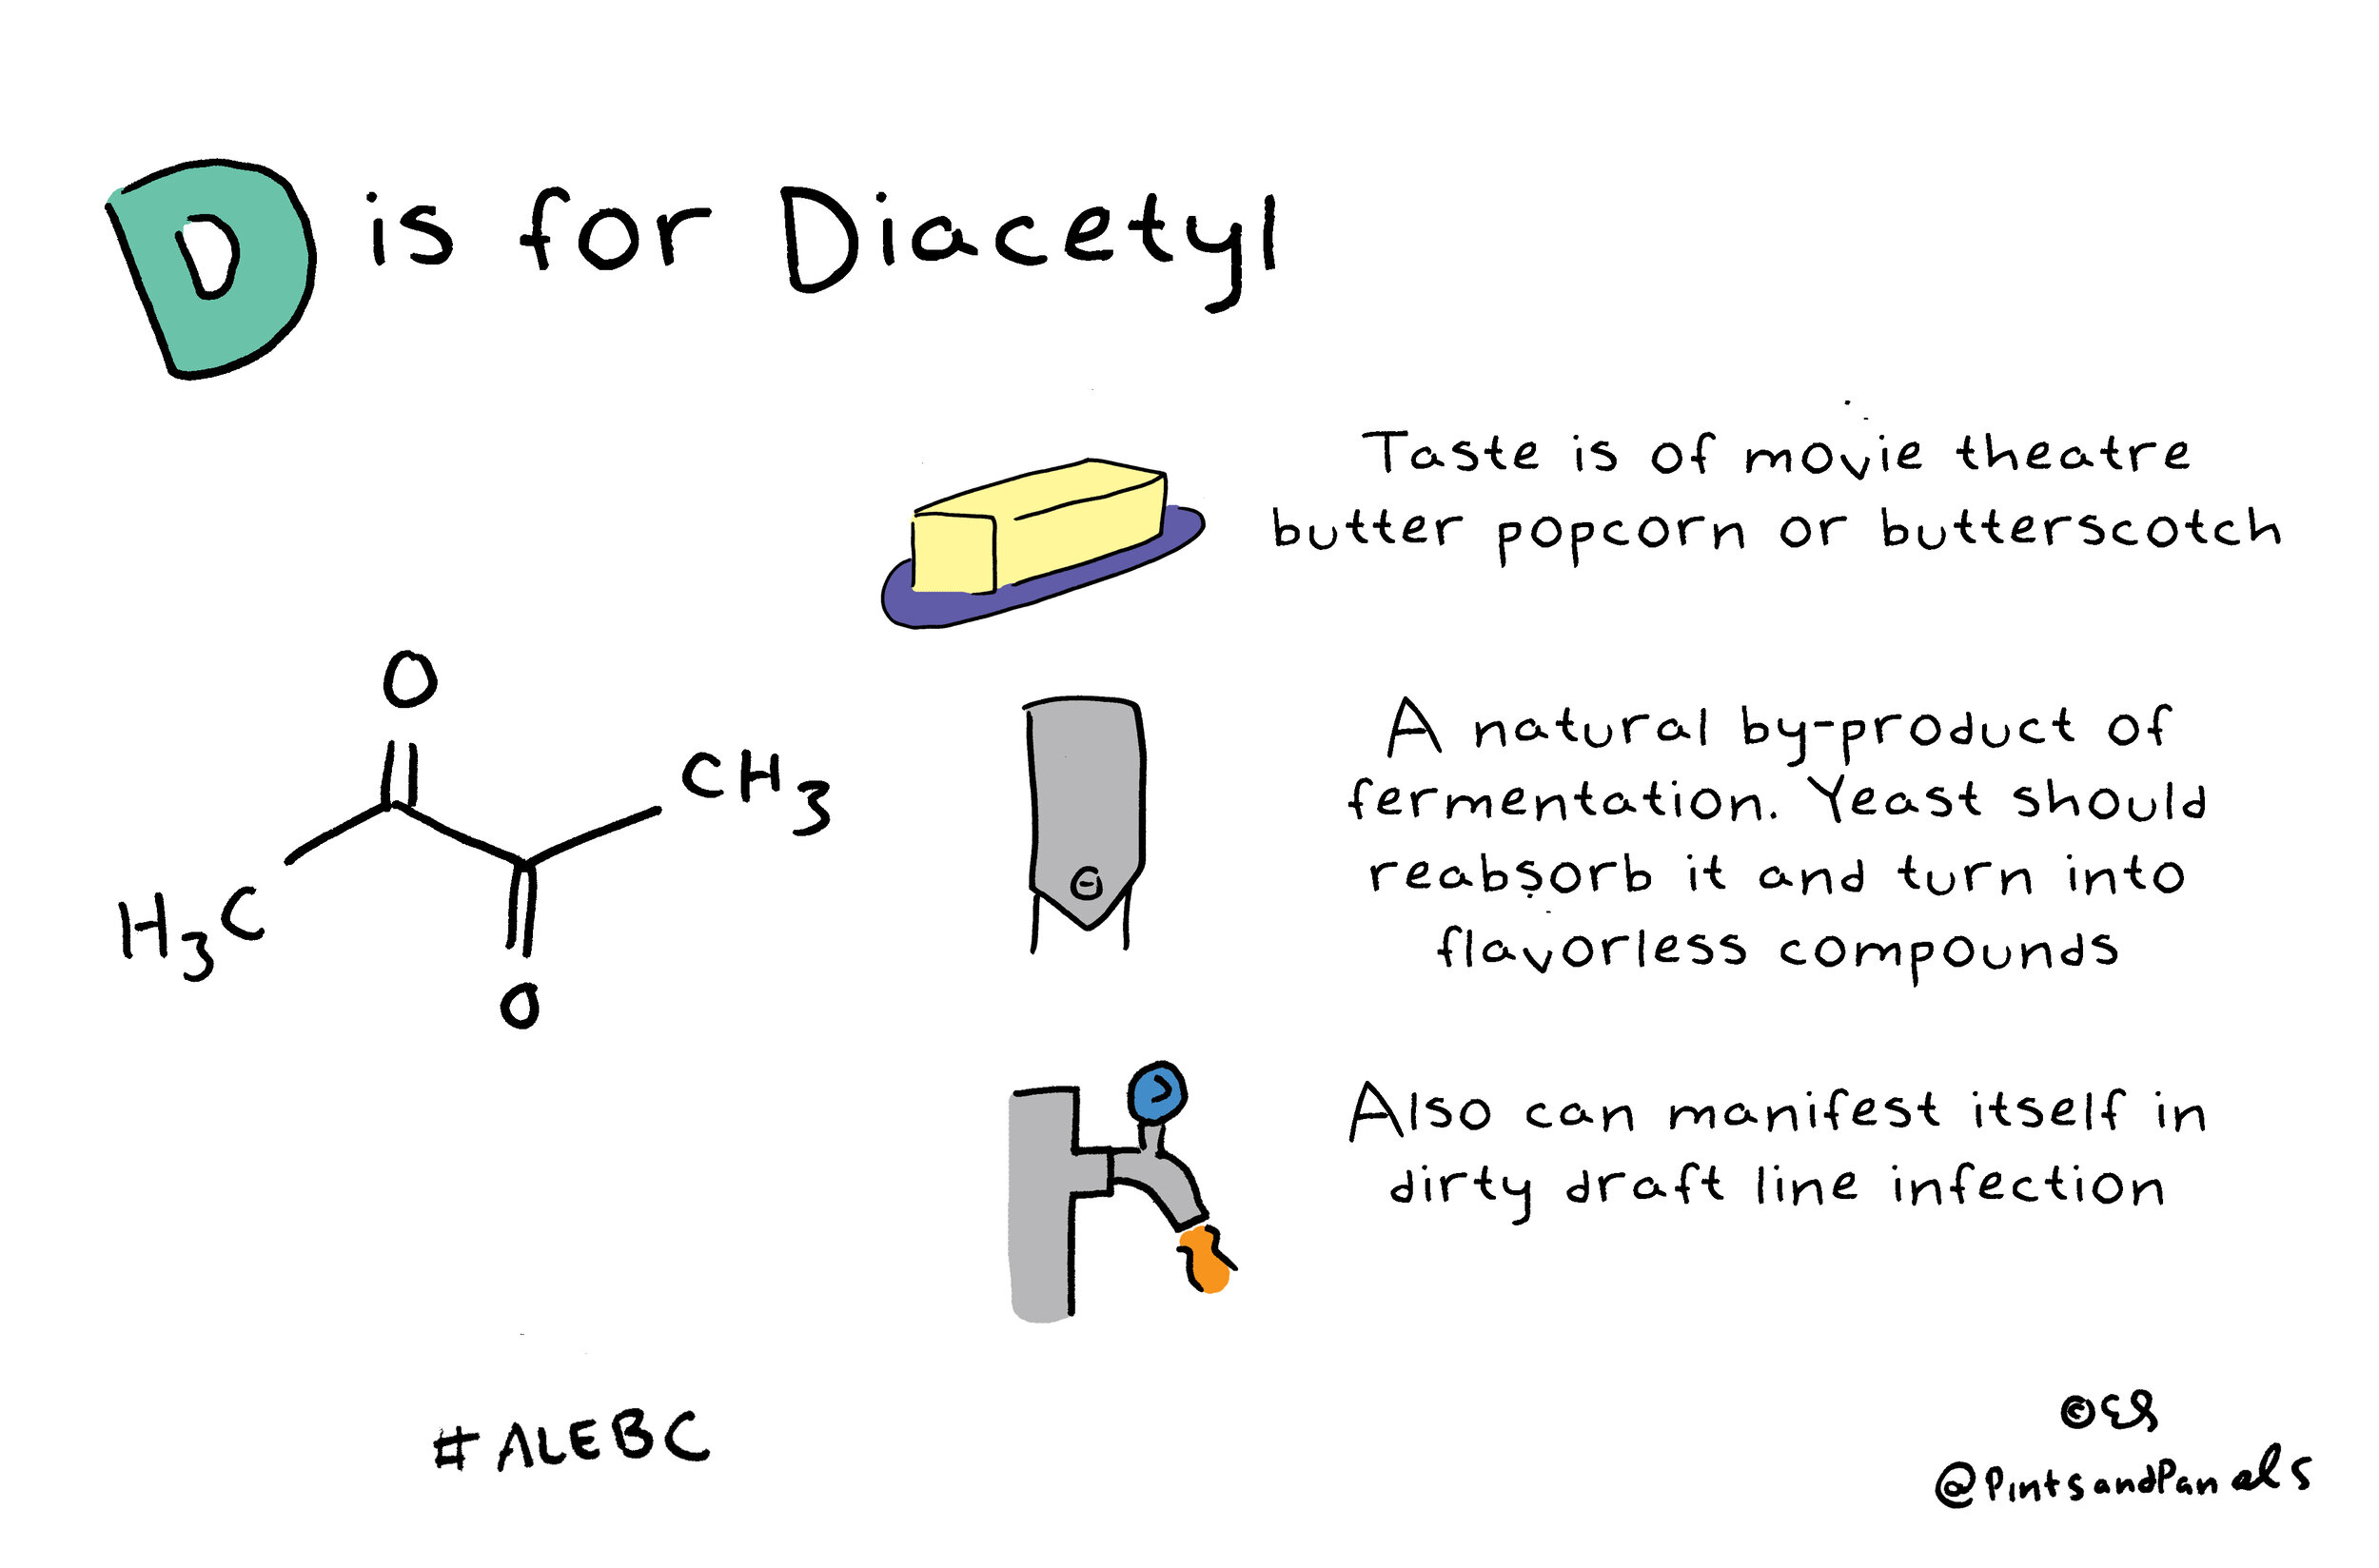 D is for Diacetyl
Taste is of movie theatre
butter popcorn or butterscotch
O
CH3
H3C
O
A natural by-product of
fermentation. Yeast should
reabsorb it and turn into
flavorless compounds
Also can manifest itself in
dirty draft line infection
#ALEBC
©ES
@PintsandPanels